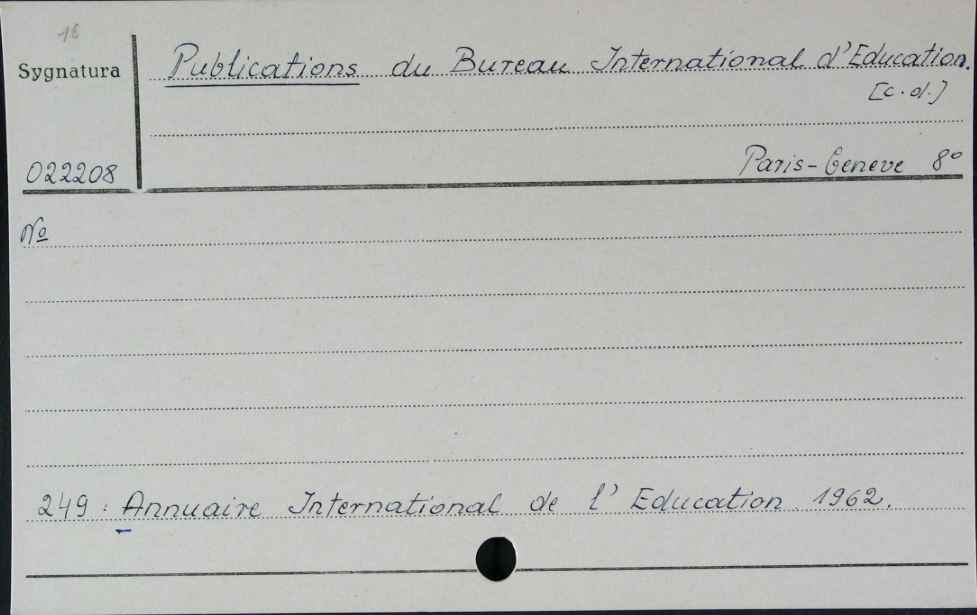 16
Sygnatura
Publications du Bureau International d'Education.
[c.d.]
022208
Paris-Geneve 8º
Nº
249: Annuaire International de l' Education 1962.